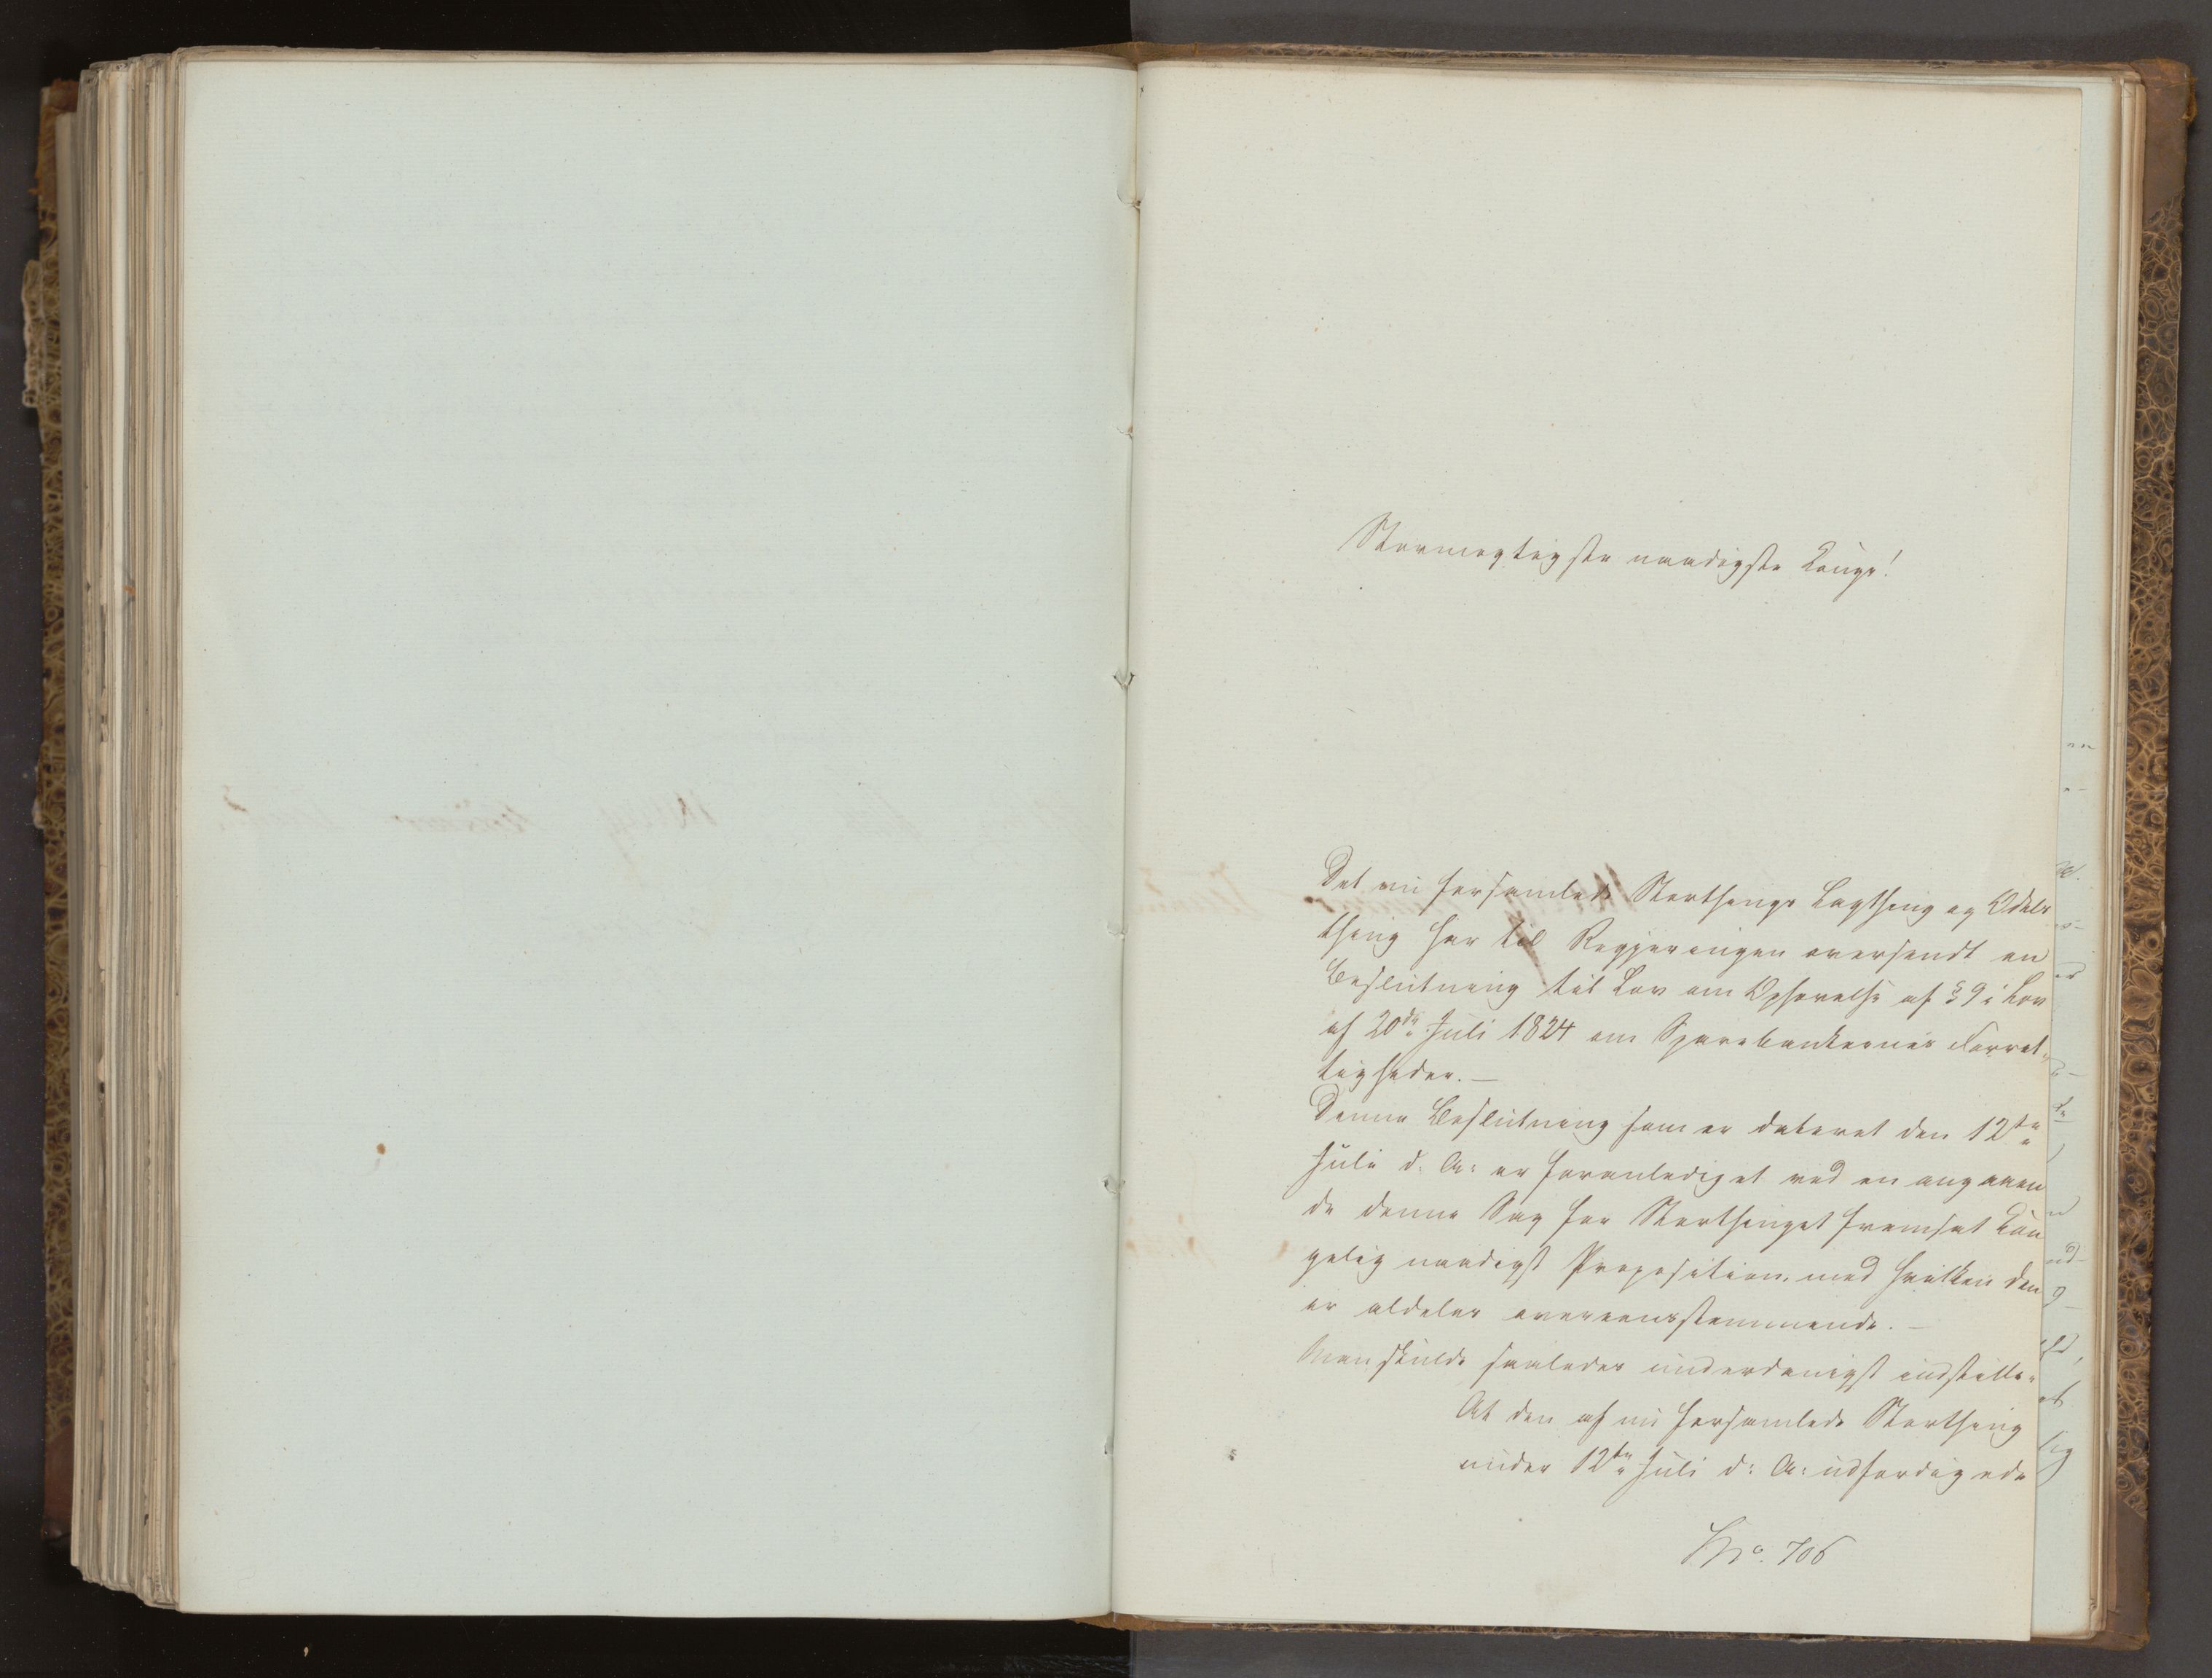 Stormægtigste naadigste Konge!
Det nu forsamlede Storthings Lagthing og Odels
thing har til Regjeringen oversendt en
Beslutning til Lov om Ophævelse af § 9 i Lov
af 20de Juli 1824 om Sparebankernes Forret-
tigheder. —
Denne Beslutning som er dateret den 12te
Juli d: A: er foranlediget ved en angaaen
de denne Sag for Storthinget fremsat Kon
gelig naadigst Proposition, med hvilken den
er aldeles overeensstemmende. —
Man skulde saaledes underdanigst indstille:
At den af nu forsamlede Storthing
under 12te Juli d: A: udfærdigede
No. 706